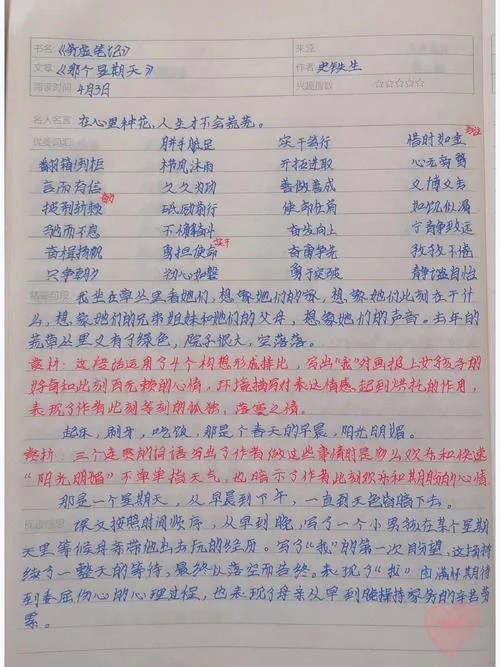 书名《务虚笔记》 来源
文章《那个星期天》 作者 史铁生
阅读时间 4月3日 兴趣指数 ☆☆☆☆☆
名人名言 在心里种花,人生才不会荒芜。
优美词汇 胼手胝足 实干笃行 惜时如金
翻箱倒柜 栉风沐雨 开拓进取 心无旁骛
言而有信 久久为功 善做善成
提到 砥砺前行 使命在肩
不懈奋斗 奋发向上 宁静致远
奋楫扬帆 勇担使命 奋勇争先 孜孜不倦
只争朝夕 初心如磐 勇于突破
精彩句段 我坐在草丛里看她们,想象她们的家,想象她们此刻在干什
么,想象她们的兄弟姐妹和她们的父母,想象她们的声音。去年的
荒草丛里又有了绿色,院子很大,空落落。
赏析:这段话运用了4个构想形成排比,写出"我"对画报上女孩子的
好奇和此刻百无聊赖的心情,环境描写对表达情感起到烘托的作用,
表现了作者此刻等刻的孤独、落寞之情。
起床,刷牙,吃饭,那是个春天的早晨,阳光明媚。
赏析:三个连续的词语写出了作者做这些事情时是多么欢乐和快速
"阳光明媚"不单单指天气,也暗示了作者此刻欢乐和期盼的心情
那是一个星期天,从早晨到下午,一直到天色昏暗下去。
阅读感悟 课文按照时间顺序,从早到晚,写了一个小男孩在某个星期
天里等候母亲带他出去玩的经历。写了"我"的第一次盼望,这场持
续了一整天的等待,最终以落空而告终。表现了"我"由满怀期待
到委屈伤心的心理过程,也表现了母亲从早到晚操持家务的辛苦劳
累。